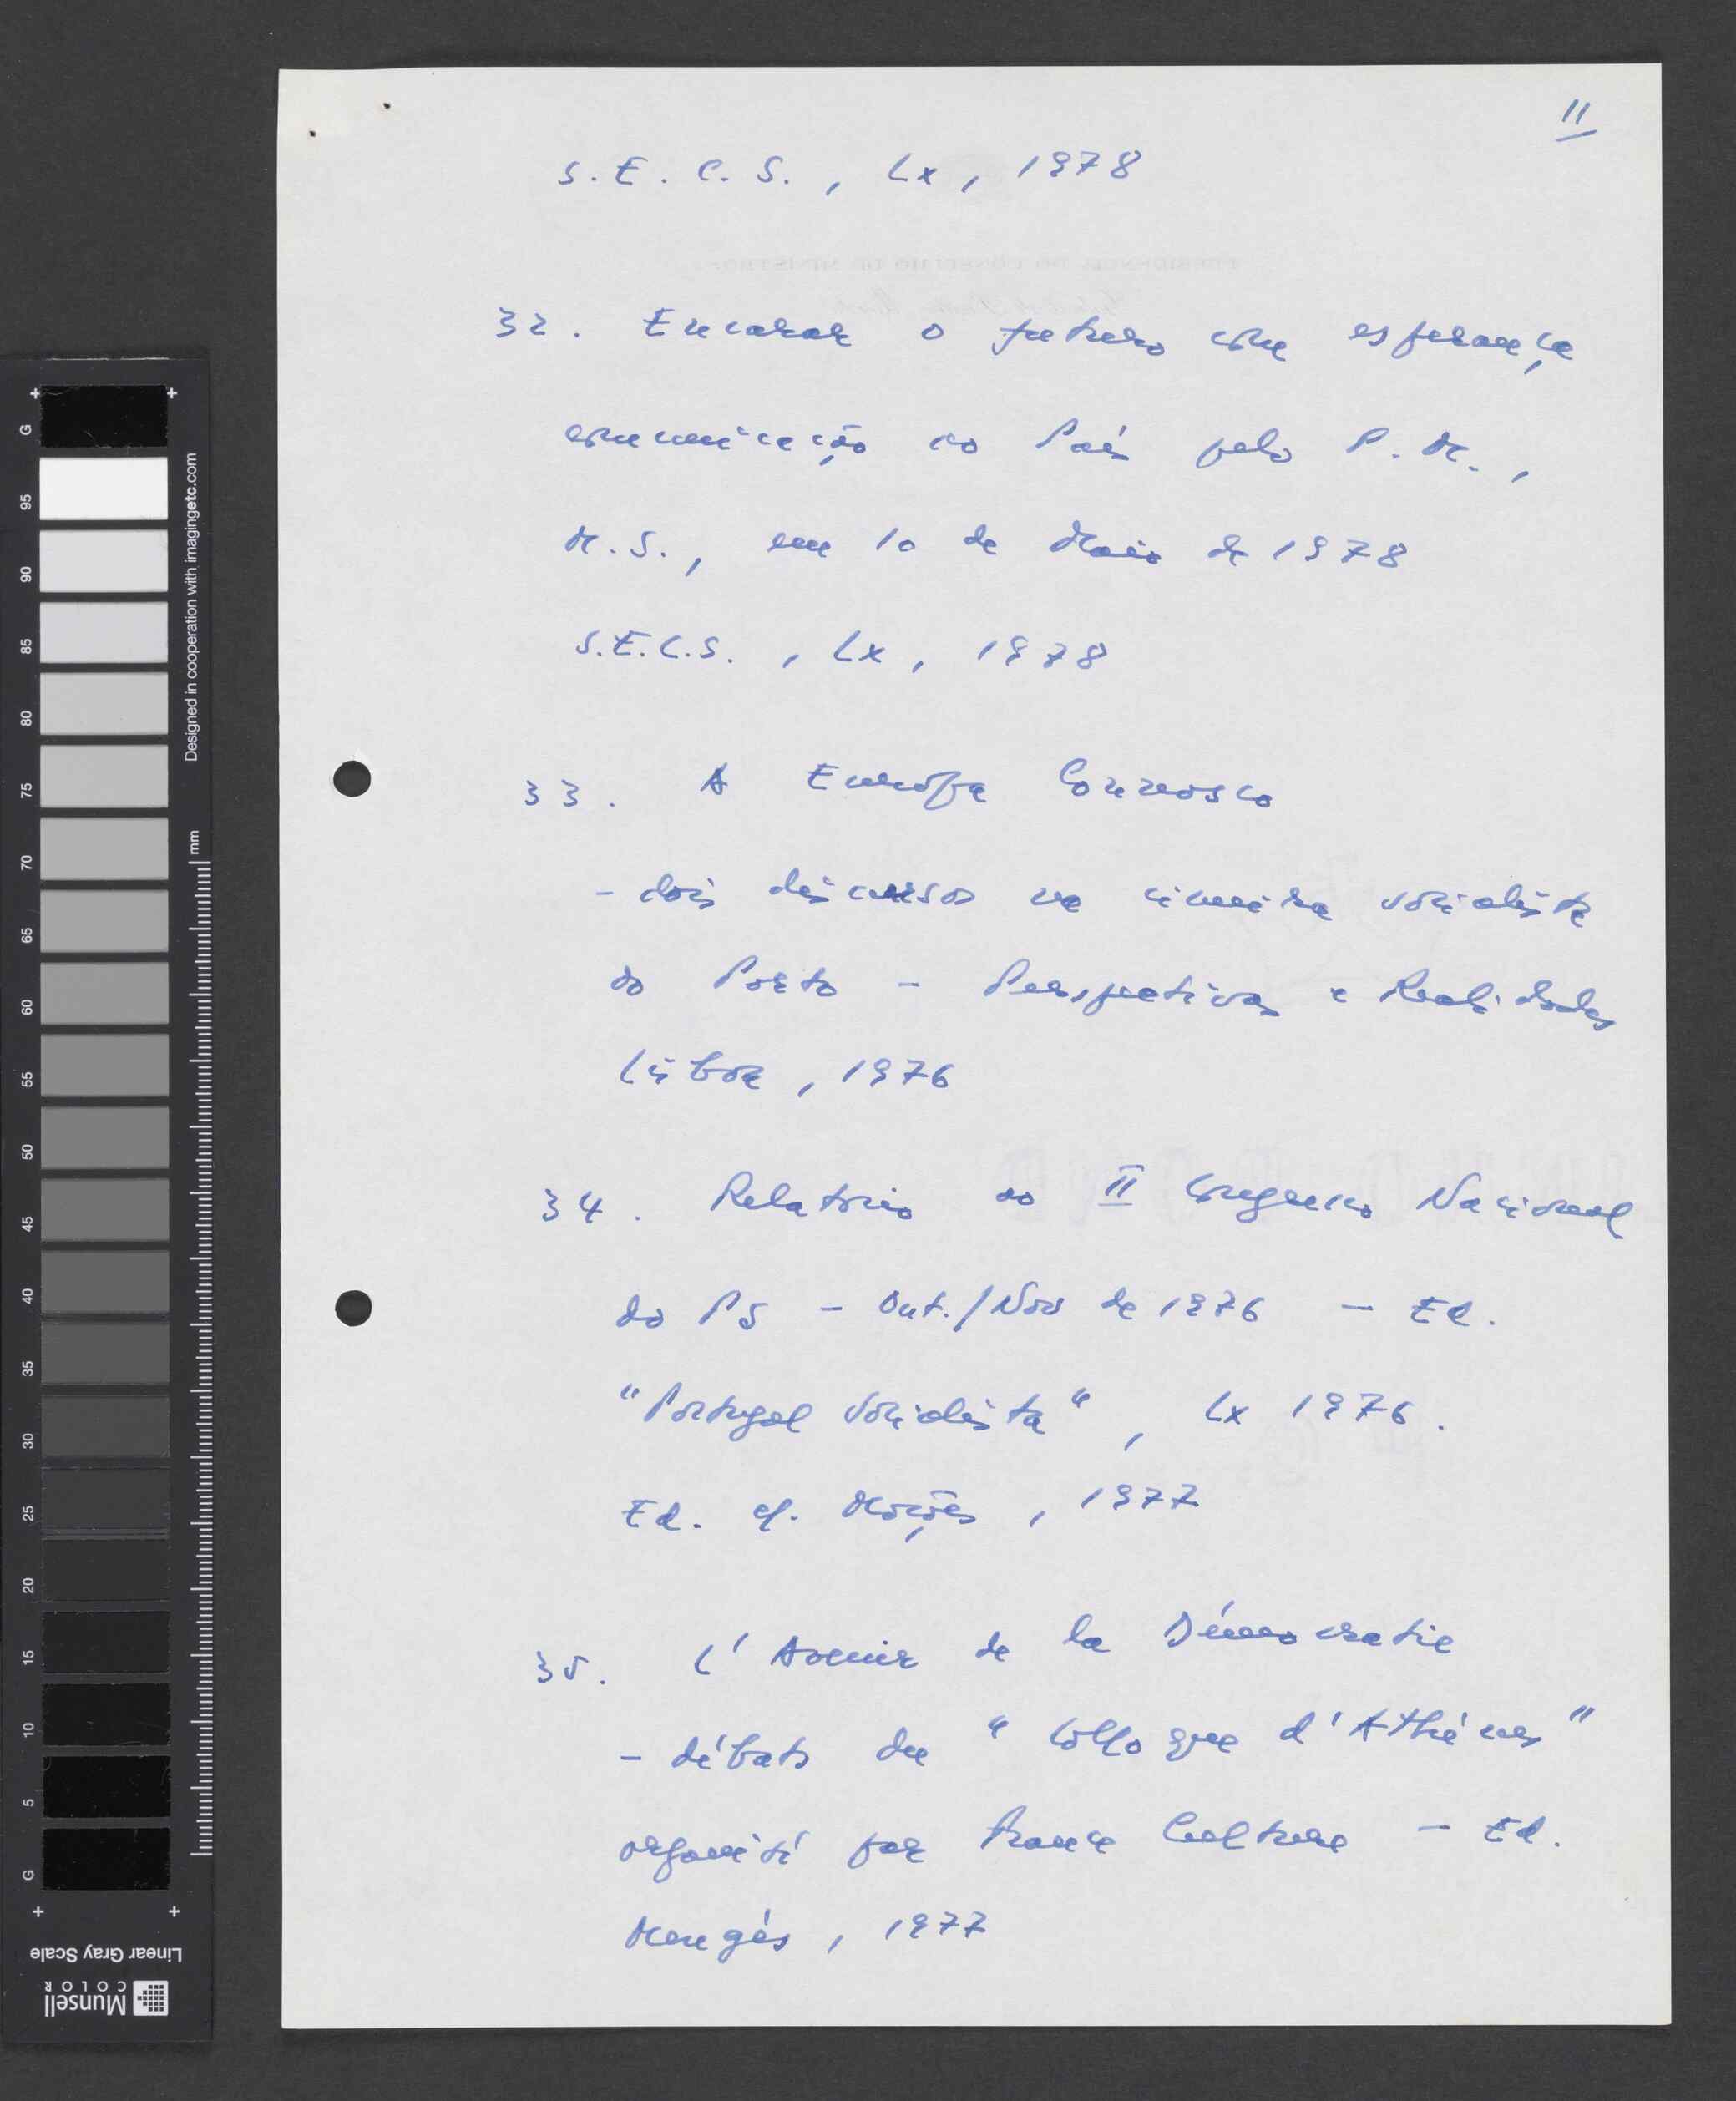 11
S.E.C.S., Lx, 1978
32. Encarar o futuro com esperança
comunicação ao País pelo P.M.,
M.S., em 10 de Maio de 1978
S.E.C.S., Lx, 1978
33. A Europa Connosco
- dois discursos na cimeira socialista
do Porto - Perspectivas e Realidades
Lisboa, 1976
34. Relatório ao II Congresso Nacional
do PS - Out./Nov de 1976 - Ed.
"Portugal Socialista", Lx 1976.
Ed. Moções, 1977
35. L'Avenir de la Démocratie
- débats du "Colloque d'Athénes"
organisé par France Culture - Ed.
Mengés, 1977
G
95
90
85
80
75
70
65
60
55
50
45
40
35
30
25
20
15
10
5
G
mm
Designed in cooperation with imagingetc.com
Linear Gray Scale
Munsell
COLOR